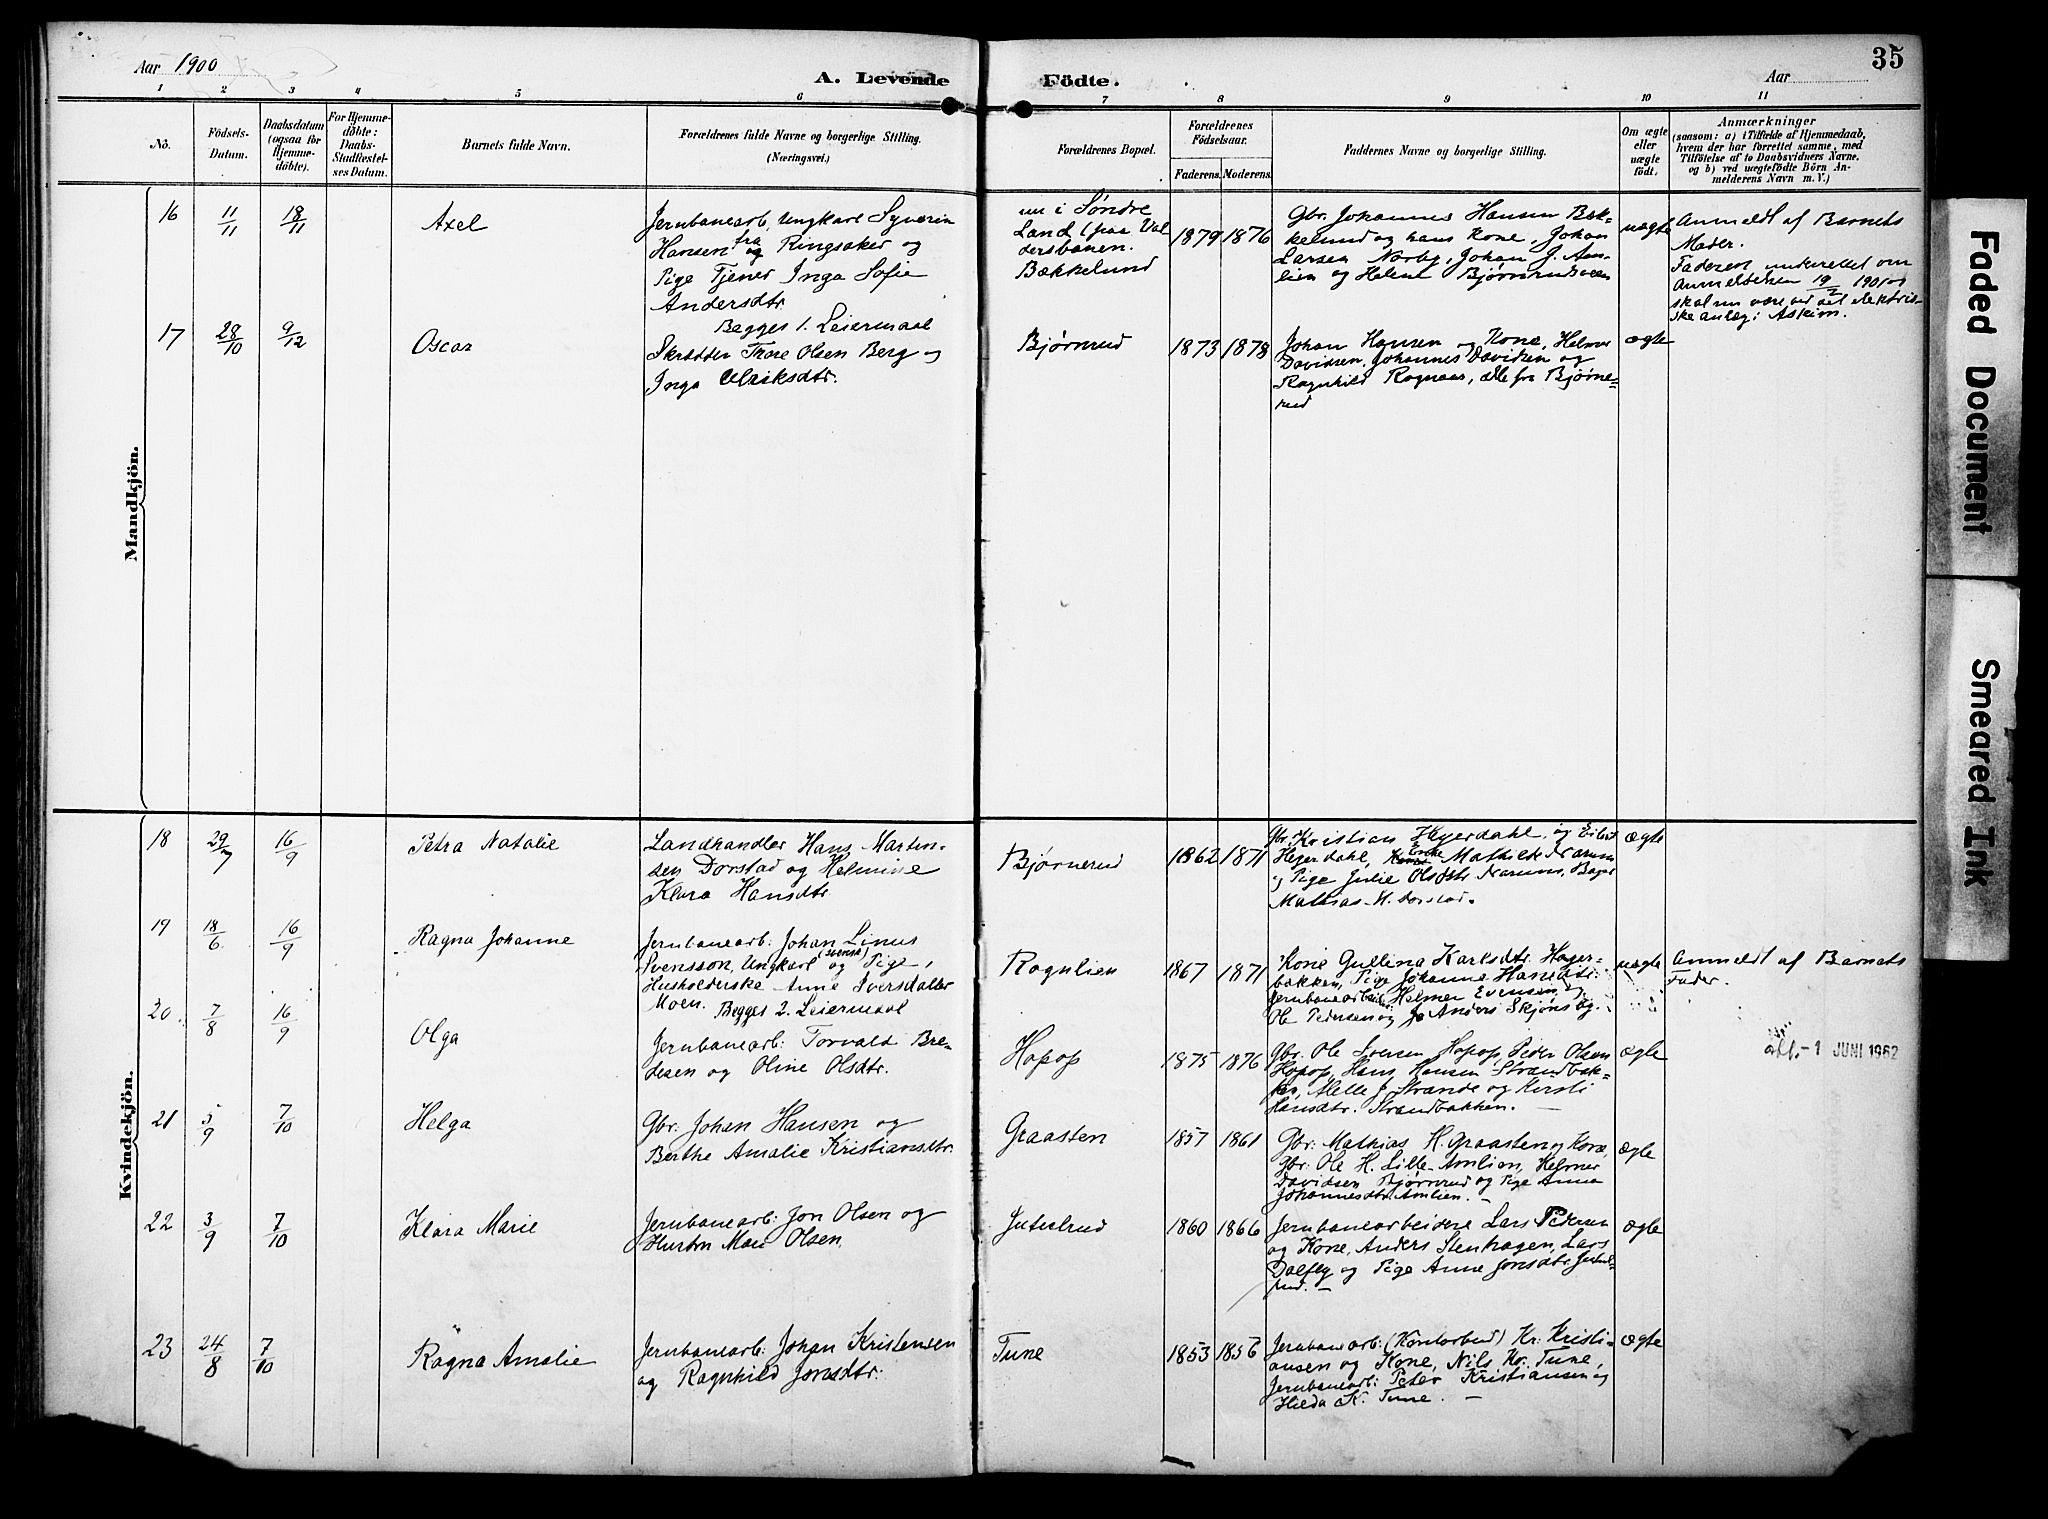 Aar 1900
A. Levende Födte.
Aar
35
1 2 3 4 5 6 7 8 9 10 11
No.
Födsels-Datum.
Daabsdatum (ogsaa for Hjemmedöbte).
For Hjemmedöbte: Daabs-Stadfæstelses Datum.
Barnets fulde Navn.
Forældrenes fulde Navne og borgerlige Stilling.
(Næringsvei.)
Forældrenes Bopæl.
Forældrenes Födselsaar.
Faderens. Moderens.
Faddernes Navne og borgerlige Stilling.
Om ægte eller uægte födt.
Anmærkninger
(saasom: a) i Tilfælde af Hjemmedaab, hvem der har forrettet samme, med Tilföielse af to Daabsvidners Navne, og b) ved uægtefödte Börn Anmelderens Navn m. V.)
Mandkjön.
16 11/11 18/11 Axel
Jernbanearb. Ungkarl Syverin
Hansen fra Ringsaker og
Pige Tjener Inga Sofie
Andersdtr.
Begges 1. Leiermaal
nu i Søndre
Land (paa Val
dersbanen.
Bækkelund
1879 1876
Gbr. Johannes Hansen Bæk-
kelund og hans Kone, Johan
Larsen Norby, Johan J. Am-
lien og Helene Bjørnerudsveen
uægte
Anmeldt af Barnets
Moder.
Faderen underrettet om
Anmeldelsen 19/2 1901 og
skal nu være ved det elektri-
ske anlæg i Askim.
17 28/10 9/12 Oscar
Skrædder Thore Olsen Berg og
Inga Ulriksdtr.
Bjørnrud
1873 1878
Johan Hansen og Kone, Helmer
Davidsen, Johannes Davidsen og
Ragnhild Rognaas, alle fra Bjørne-
rud
ægte
Kvindekjön.
18 29/7 16/9 Petra Natalie
Landhandler Hans Martin-
sen Dorstad og Helmine
Klara Hansdtr.
Bjørnerud
1862 1871
Gbr. Kristian Hejerdahl, og Eilert
Hejerdahl, Enke Mathilde Narum
og Pige Julie Olsdtr. Narum, Bager
Mathias H. Dorstad.
ægte
19 18/6 16/9 Ragna Johanne
Jernbanearb. Johan Linus
Svensson, Ungkarl (svensk) og Pige,
Husholderske Anne Iversdatter
Moen. Begges 2. Leiermaal
Rognlien
1867 1871
Kone Gullina Karlsdtr. Hager-
bakken, Pige Johanne Hansdtr.
Jernbanearbeider Helmer Evensen, og
Ole Pedersen og Anders Skjønsby.
uægte
Anmeldt af Barnets
Fader.
20 7/8 16/9 Olga
Jernbanearb: Torvald Bre-
desen og Oline Olsdtr.
Hopop
1875 1876
Gbr. Ole Iversen Hopop, Peder Olsen
Hopop, Hans Hansen Strandbak-
ken, Helle J. Strande og Kersti
Hansdtr. Strandbakken. —
ægte
att. - 1 JUNI 1962
21 5/9 7/10 Helga
Gbr. Johan Hansen og
Berthe Amalie Kristiansdtr.
Graasten
1857 1861
Gbr. Mathias H. Graasten og Kone,
Gbr. Ole H. Lille-Amlien, Helmer
Davidsen Bjørnerud og Pige Anna
Johannesdtr. Amlien. —
ægte
22 3/9 7/10 Klara Marie
Jernbanearb: Jon Olsen og
Hustru Mari Olsen
Jutulrud
1860 1866
Jernbanearbeidere Lars Pedersen
og Kone, Anders Stenhagen, Lars
Dalfby og Pige Anne Jonsdtr. Jutul-
rud. —
ægte
23 24/8 7/10 Ragna Amalie
Jernbanearb: Johan Kristensen
og Ragnhild Jonsdtr.
Tune
1853 1856
Jernbanearb: (Kontorbud) Kr. Kristi-
ansen og Kone, Nils Kr. Tune,
Jernbanearb: Peter Kristiansen og
Hilda K. Tune. —
ægte
Faded Document
Smeared Ink